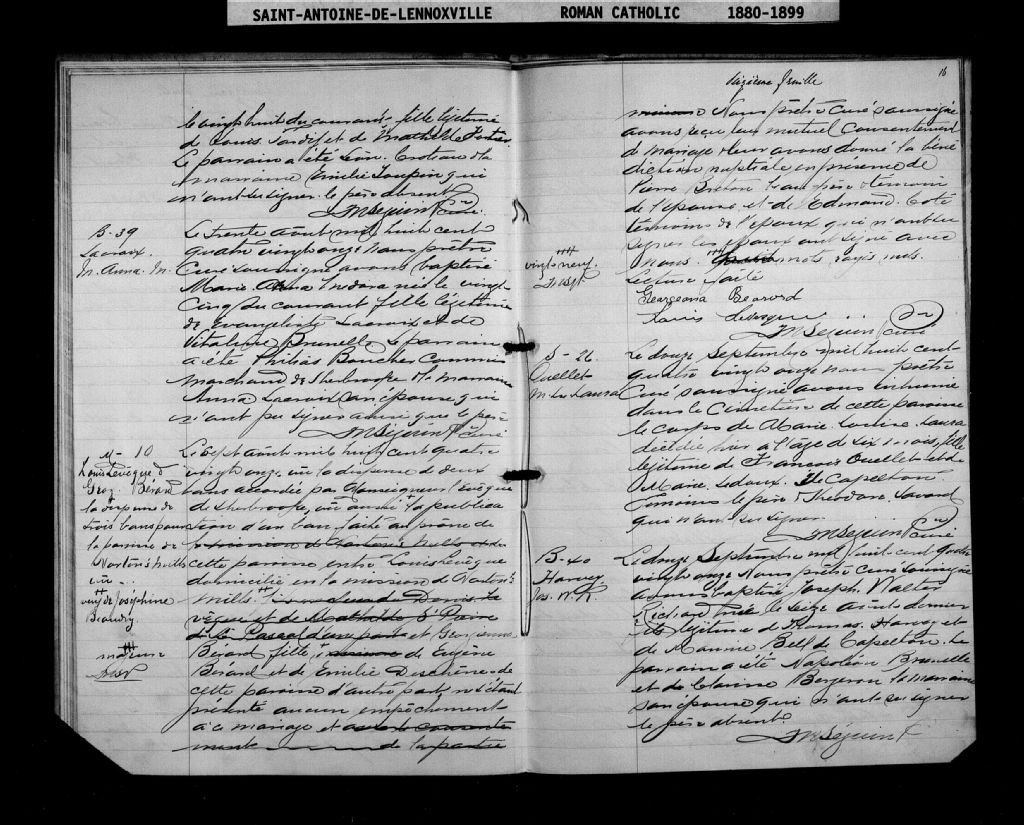 SAINT-ANTOINE-DE-LENNOXVILLE ROMAN CATHOLIC 1880-1899
le vingt huit du courant fille légitime
de Louis et de Mathilde
Le parrain a été Léon Croteau & la
marraine Emilie Toupin qui
n'ont su signer le père absent
FMSéguin Ptr Curé
B-39
Lacroix
M. Anna. In.
Le trente août mil huit cent
quatre vingt onze nous prêtre
Curé soussigné avons baptisé
Marie Anna Indora née le vingt
cinq du courant fille légitime
de Evangeliste Lacroix et de
Vitaline Brunelle Le parrain
a été Boucher Commis
Marchand de Sherbrooke & la marraine
Anna Lacroix son épouse qui
n'ont pu signer ainsi que le père
FMSéguin Ptr Curé
M-10
Louis Levêque &
Geog. Bérard
la dispense de
trois bans pour
la paroisse de
Norton's mills
vu
++
veuf de Joséphine
Beaudry
+++
majeure
Le sept août mil huit cent quatre
vingt onze, vu la dispense de deux
bans accordée par Monseigneur l'Evêque
de Sherbrooke, vu aussi la publica
tion d'un ban faite au prône de
cette paroisse entre Louis Levêque
domicilié en la mission de Norton's
mills ++
vêque et de Mathilde St Pierre
d'une part et Georgianna
Bérard fille mineure de Eugène
Bérard et de Emilie Deschênes de
cette paroisse d'autre part, ne s'étant
présenté aucun empêchement
à ce mariage et
ment de la partie
seizième feuille
16
mineure Nous prêtre curé soussigné
avons reçu leur mutuel consentement
de mariage & leur avons donné la béné
diction nuptiale en présence de
Pierre Breton témoin
de l'épouse et de Edmond Coté
témoins de l'époux qui n'ont su
signer les époux ont signé avec
nous. mots rayés nuls.
Lecture faite
++++
vingt neuf
Georgeana Bearord
Louis Levesque
FMSéguin Ptr Curé
S-26
Ouellet
M. Ls Laura
Le douze Septembre mil huit cent
quatre vingt onze nous prêtre
Curé soussigné avons inhumé
dans le Cimetière de cette paroisse
le corps de Marie Louise Laura
décédée hier à l'age de six mois, fille
légitime de François Ouellet et de
Marie Ledoux de Capelton
Témoins le père & Théodore Savard
qui n'ont su signer
FMSéguin Ptr Curé
B-40
Harvey
Jos. W. R.
Le douze Septembre mil huit cent quatre
vingt onze Nous prêtre curé soussigné
avons baptisé Joseph Walter
Richard né le seize août dernier
fils légitime de Thomas Harvey et
de Mannie Bell de Capelton. Le
parrain a été Napoléon Brunelle
et de Clarisse Bergeron la marraine
son épouse qui n'ont su signer
le père absent
FMSéguin Ptr